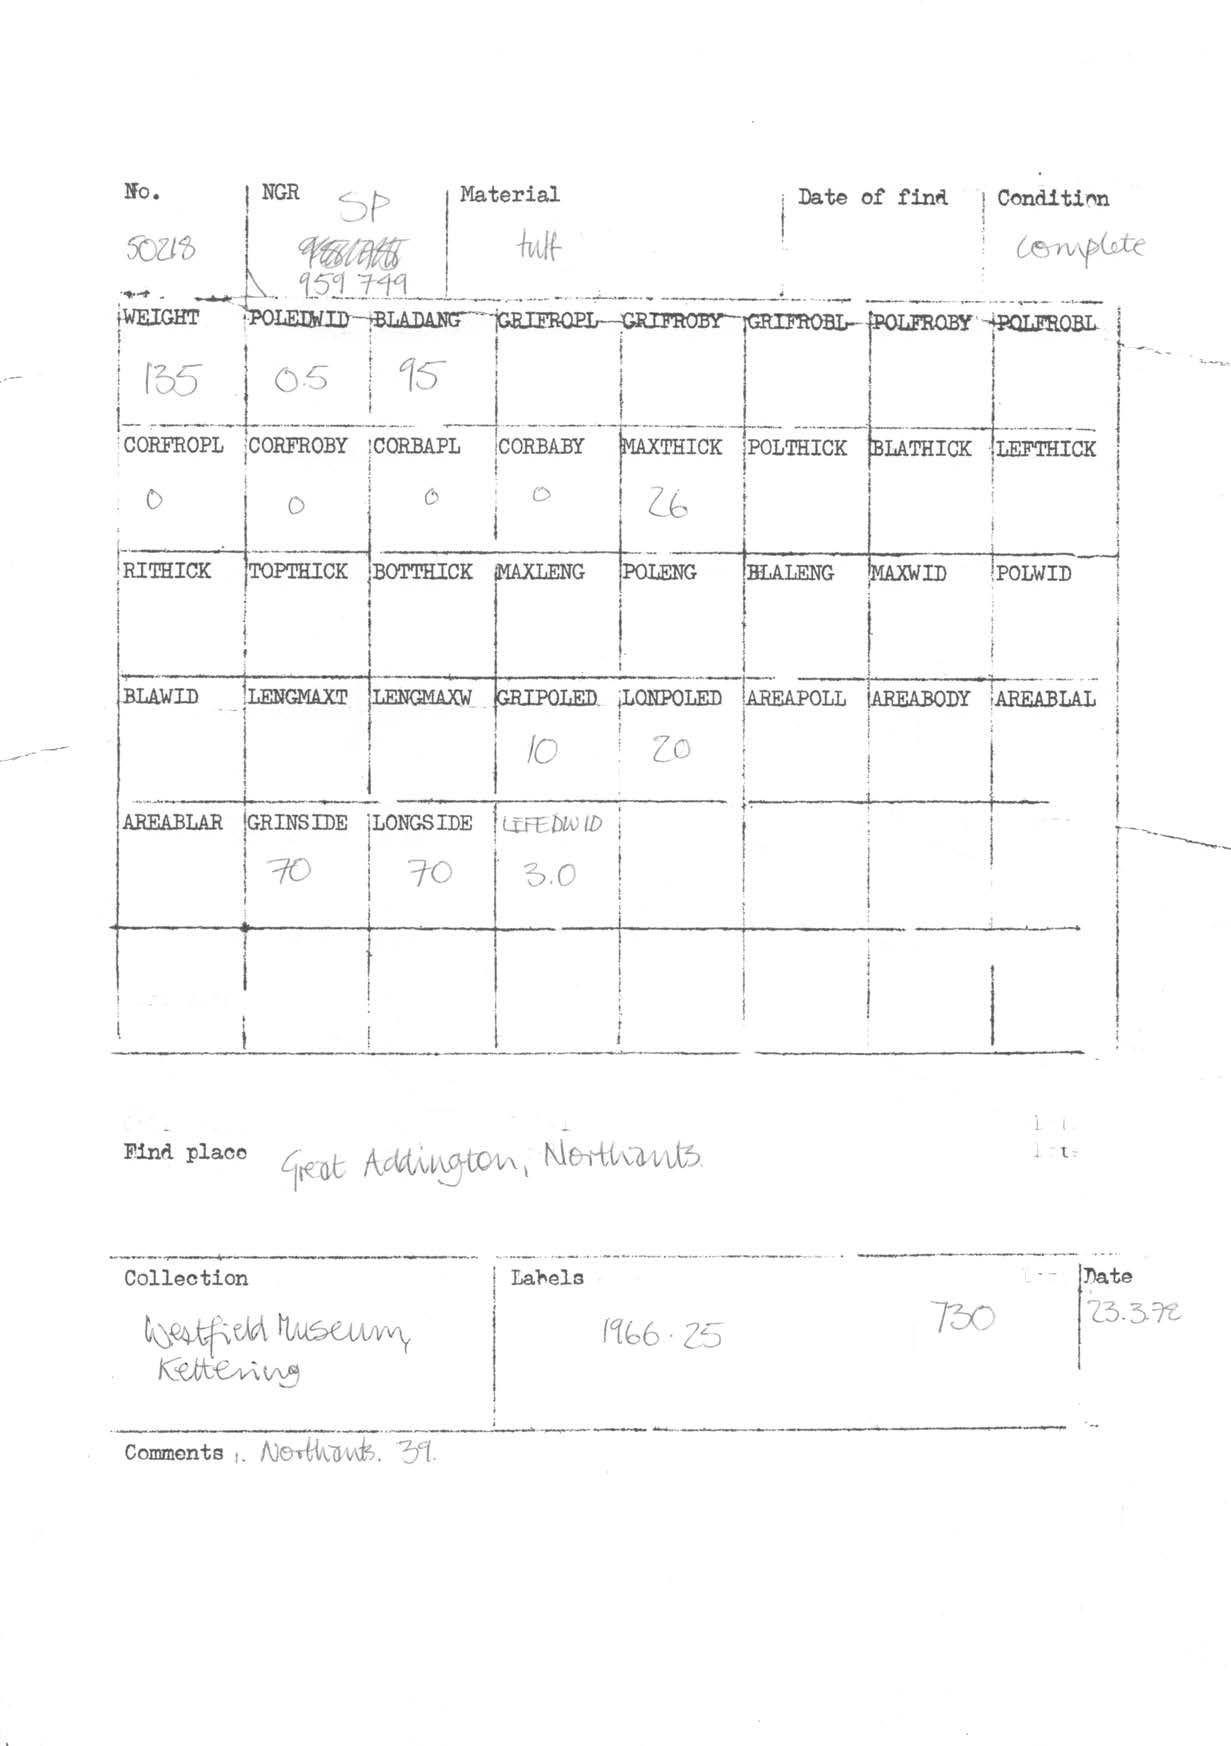 No. NGR SP Material Date of find Condition
50218 tuff complete
959 749
WEIGHT POLEDWID BLADANG GRIFROPL GRIFROBY GRIFROBL POLFROBY POLFROBL
135 0.5 95
CORFROPL CORFROBY CORBAPL CORBABY MAXTHICK POLTHICK BLATHICK LEFTHICK
0 0 0 0 26
RITHICK TOPTHICK BOTTHICK MAXLENG POLENG BLALENG MAXWID POLWID
BLAWID LENGMAXT LENGMAXW GRIPOLED LONPOLED AREAPOLL AREABODY AREABLAL
10 20
AREABLAR GRINSIDE LONGSIDE LIFEDWID
70 70 3.0
Find place Great Addington, Northants.
Collection Labels Date
Westfield Museum, 1966.25 730 23.3.78
Kettering
Comments Northants. 39.